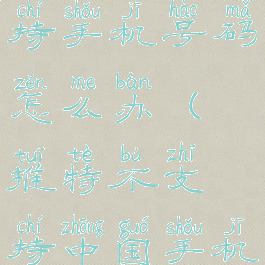 chí shǒu jī hào mǎ
持手机号码
zěn me bàn
怎么办（
tuī tè bù zhī
推特不支
chí zhōng guó shǒu jī
持中国手机